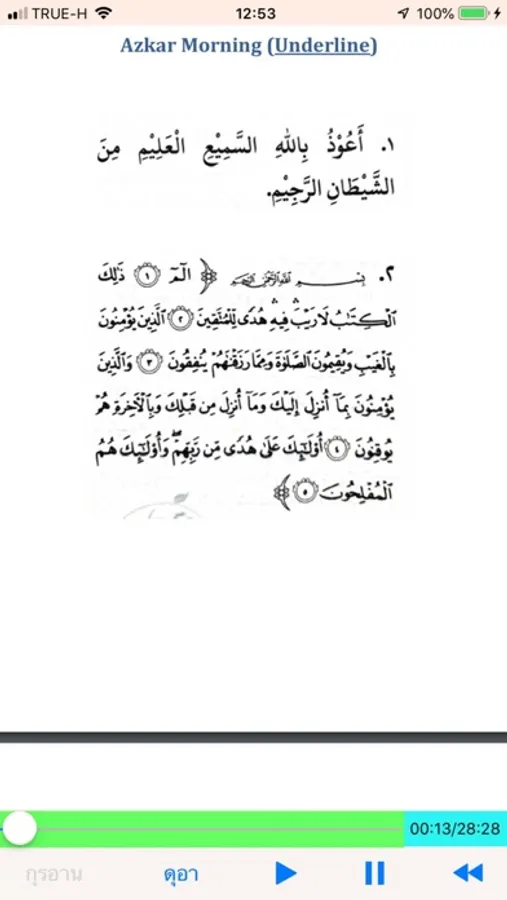 TRUE-H 12:53 100%
Azkar Morning (Underline)
١. أَعُوْذُ بِاللهِ السَّمِيْعِ الْعَلِيْمِ مِنَ
الشَّيْطَانِ الرَّجِيْمِ.
٢. بِسْمِ اللَّهِ الرَّحْمَٰنِ الرَّحِيمِ ﴿ الٓمٓ ۝١ ذَٰلِكَ
الْكِتَابُ لَا رَيْبَ ۛ فِيهِ ۛ هُدًى لِّلْمُتَّقِينَ ۝٢ الَّذِينَ يُؤْمِنُونَ
بِالْغَيْبِ وَيُقِيمُونَ الصَّلَوٰةَ وَمِمَّا رَزَقْنَٰهُمْ يُنفِقُونَ ۝٣ وَالَّذِينَ
يُؤْمِنُونَ بِمَآ أُنزِلَ إِلَيْكَ وَمَآ أُنزِلَ مِن قَبْلِكَ وَبِالْأَخِرَةِ هُمْ
يُوقِنُونَ ۝٤ أُوْلَٰٓئِكَ عَلَىٰ هُدًى مِّن رَّبِّهِمْ ۖ وَأُوْلَٰٓئِكَ هُمُ
الْمُفْلِحُونَ ۝٥ ﴾
00:13/28:28
กุรอาน ดุอา